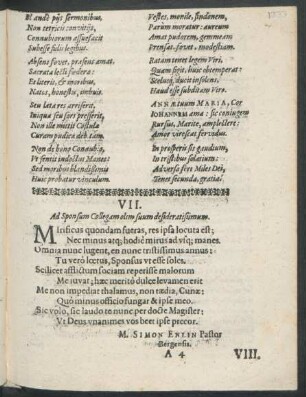 Bl andi pijs sermonibus,
Non tetricis convitijs,
Connubiorum assuefacit
Subesse suos legibus.
Absens fovet, præsens amat,
Sacrata lecti fœdera:
Et literis, & moribus,
Natos, honestis, imbuit.
Seu læta res arriserit,
Iniqua seu sors presserit,
Non ille mittit
Curam pudicæ
Non de bono Connubio,
Vt sentit indoctus
Sed moribus blandissimis
Huic probatur vinculum.
Vestes, monile, spondeum,
Parùm moratur: aureum
Amat pudorem, gemmeam
Prensat, fovet, modestiam.
Ratam tenet legem Viri,
Quam sixit, huic obtemperat:
Et
Haud esse subditam Viro.
ANNÆ tuum MARIA, Cor
IOHANNEM ama: sic conjugem
Rursus, Marite, amplectere:
Amor virescat fervidus.
In prosperis sis gaudium,
In tristibus solatium:
Adversa fert Miles Dei,
Tenet secunda, gratiâ.
VII.
Ad Sponsum Collegam olim suum desideratissimum.
Mirificus quondam fueras, res ipsa locuta est;
Nec minus atq; hodiè mirus ad usq; manes.
Omnia nunc lugent, en nunc tristissimus annus:
Tu verò lœtus, Sponsus vt esse soles.
Scilicet afflictum sociam reperisse malorum
Me juvat; hæc meritò dulce levamen erit
Me non impediat thalamus, non tædia, Cunæ;
Quò minus officio fungar & ipse meo.
Sic volo, sic laudo te nunc per docte Magister;
Vt Deus vnanimes vos beet ipse precor.
M. SIMON ERLIN Pastor
Bergensis.
A 4
VIII.